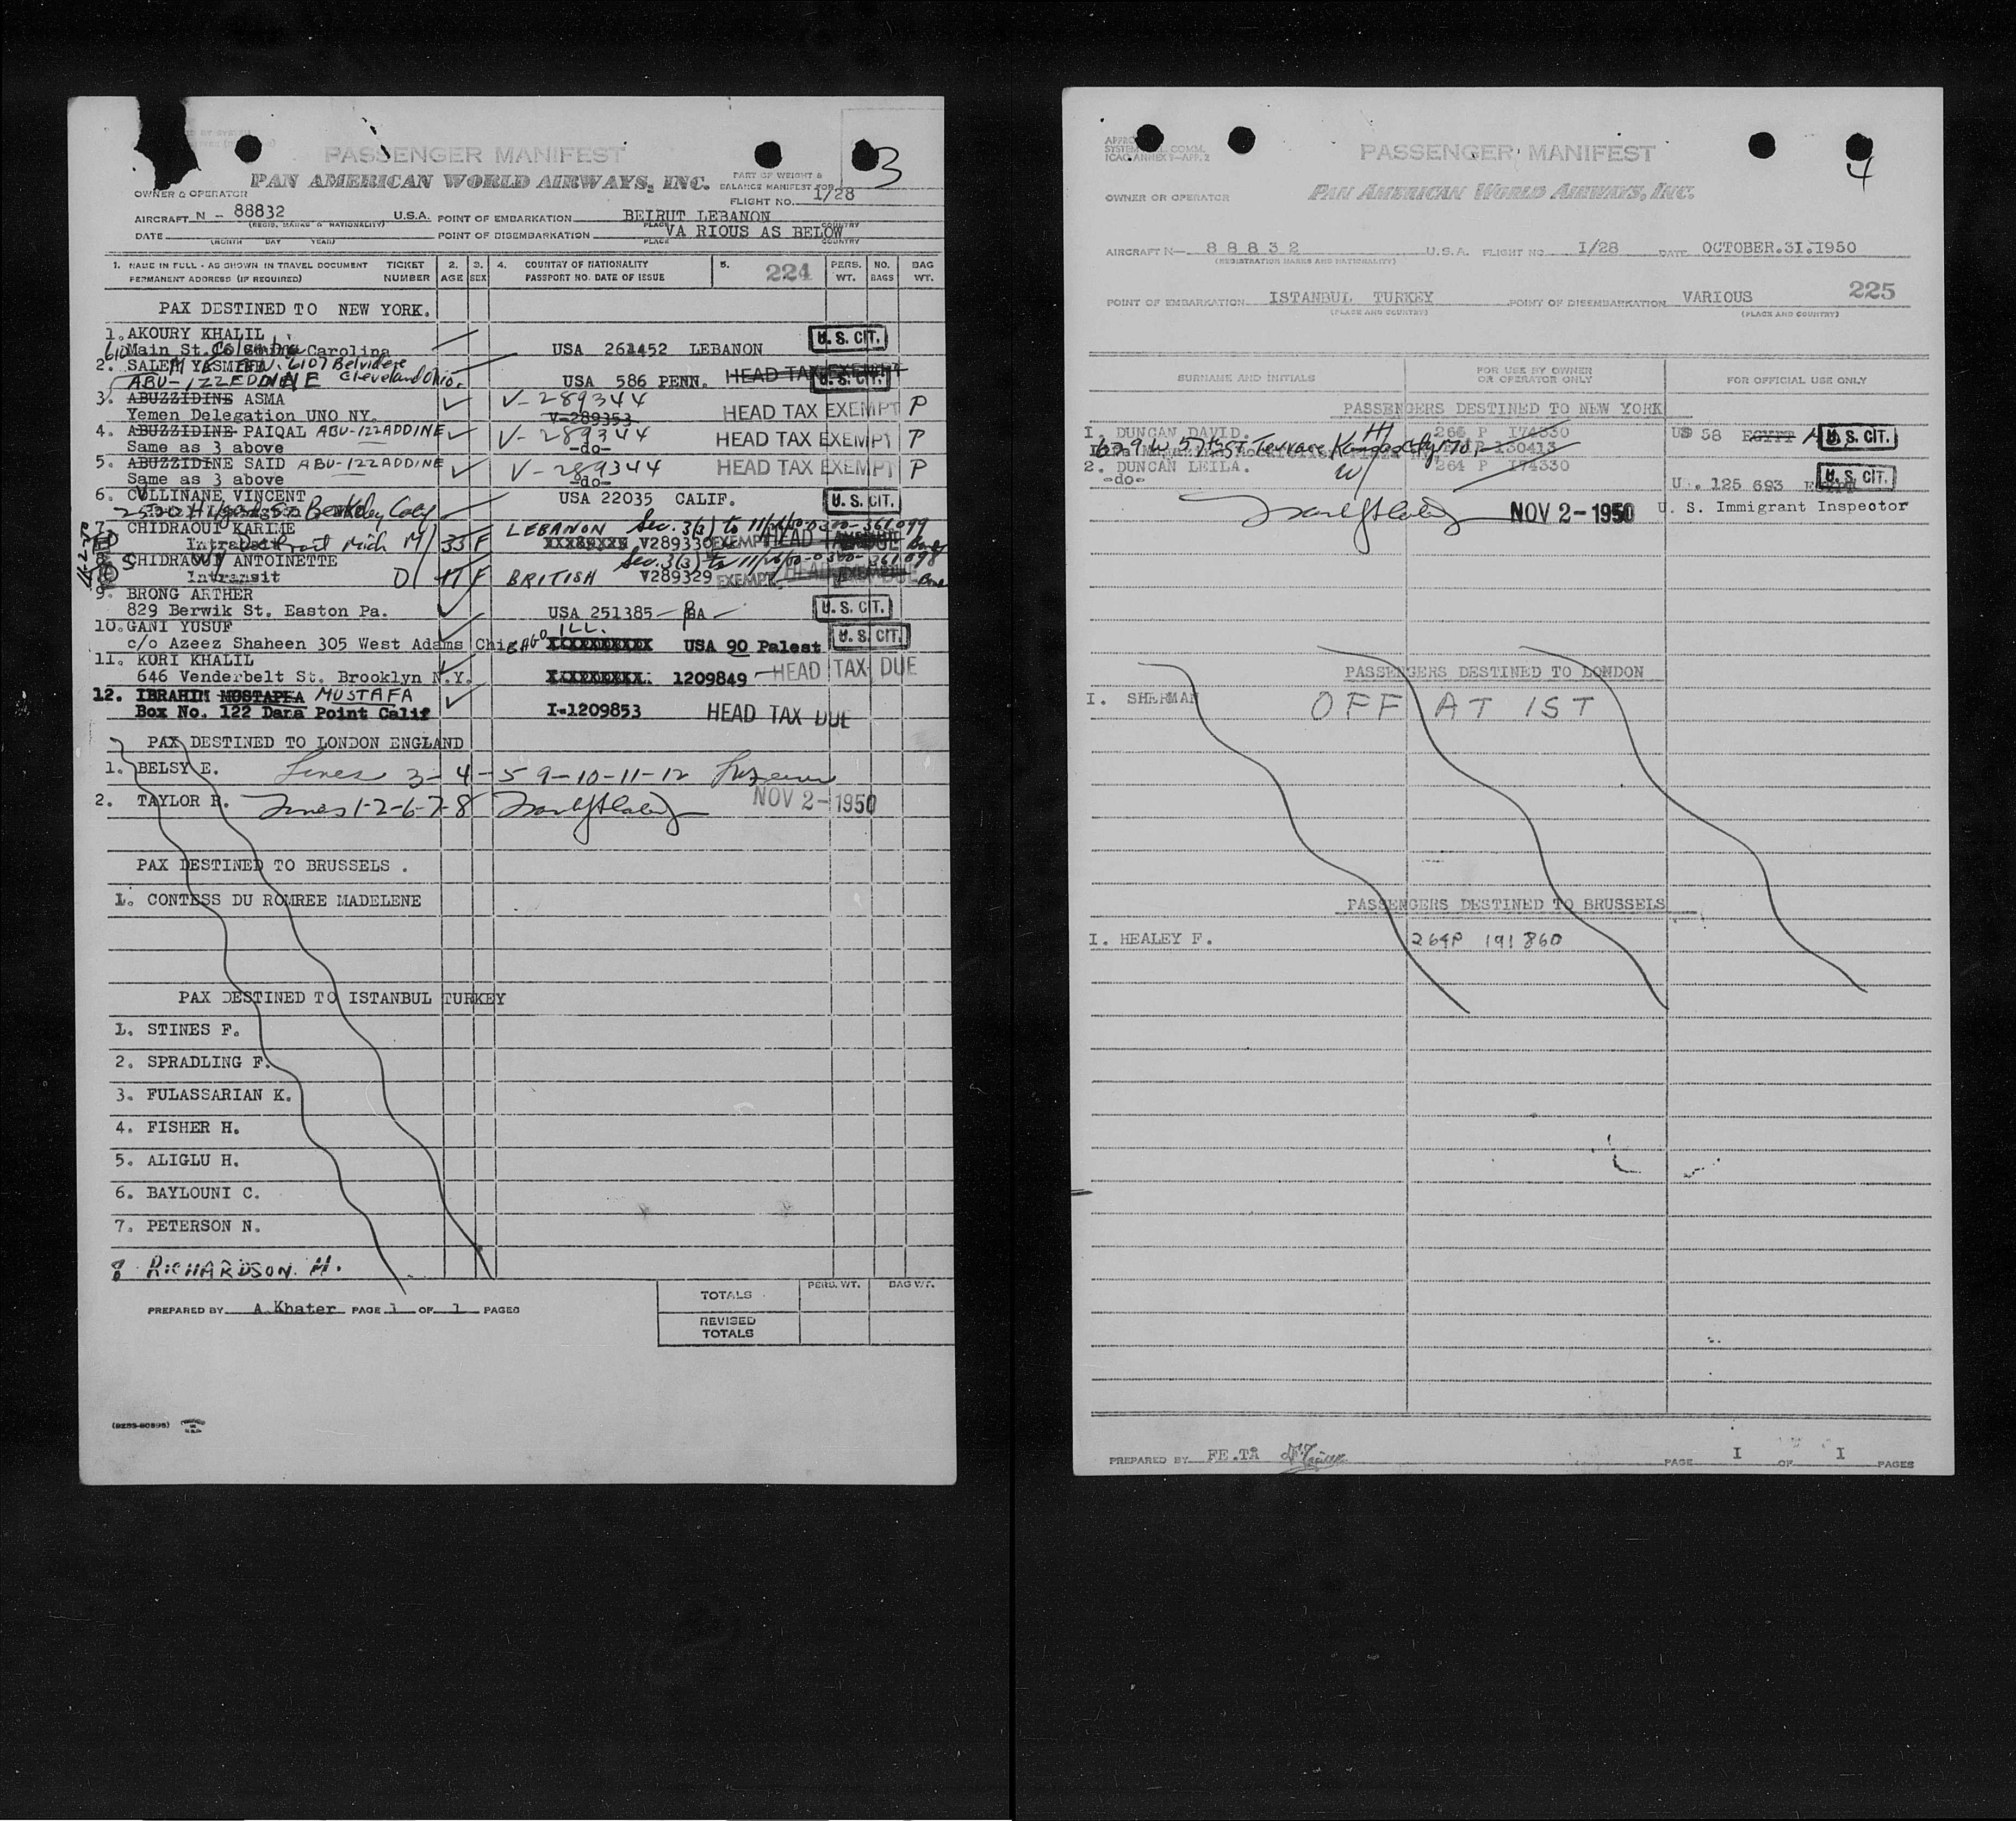 3
PASSENGER MANIFEST
PAN AMERICAN WORLD AIRWAYS, INC.
PART OF WEIGHT &
BALANCE MANIFEST FOR
OWNER & OPERATOR
FLIGHT NO. 1/28
AIRCRAFT N - 88832 U.S.A. POINT OF EMBARKATION BEIRUT LEBANON
(REGIS. MARKS & NATIONALITY) PLACE COUNTRY
DATE POINT OF DISEMBARKATION VA RIOUS AS BELOW
(MONTH DAY YEAR) PLACE COUNTRY
1. NAME IN FULL - AS SHOWN IN TRAVEL DOCUMENT TICKET 2. 3. 4. COUNTRY OF NATIONALITY 5. 224 PERS. NO. BAG
PERMANENT ADDRESS (IF REQUIRED) NUMBER AGE SEX PASSPORT NO. DATE OF ISSUE WT. BAGS WT.
PAX DESTINED TO NEW YORK.
1. AKOURY KHALIL U. S. CIT.
610 Main St. Columbia Carolina USA 261452 LEBANON
2. SALEM YASMEEN 6107 Belvidere
ABU-IZZEDDINE Cleveland Ohio. USA 586 PENN. HEAD TAX EXEMPT U. S. CIT.
3. ABUZZIDINE ASMA V-289344
Yemen Delegation UNO NY. V-289353 HEAD TAX EXEMPT P
4. ABUZZIDINE PAIQAL ABU-IZZADDINE V-289344
Same as 3 above -do- HEAD TAX EXEMPT P
5. ABUZZIDINE SAID ABU-IZZADDINE V-289344
Same as 3 above -do- HEAD TAX EXEMPT P
6. CULLINANE VINCENT USA 22035 CALIF. U. S. CIT.
7. CHIDRAOUI KARIME LEBANON Sec. 3(3) to 11/16/50-0300-361099
Intransit Detroit Mich M 33 F V289330 EXEMPT HEAD TAX DUE
8. CHIDRAOUI ANTOINETTE Sec. 3(3) to 11/16/50-0300-361098
Intransit D 17 F BRITISH V289329 EXEMPT HEAD TAX DUE
9. BRONG ARTHER
829 Berwik St. Easton Pa. USA 251385 - PA - U. S. CIT.
10. GANI YUSUF ILL.
c/o Azeez Shaheen 305 West Adams Chicago XXXXXXXXXX USA 90 Palest U. S. CIT.
11. KORI KHALIL
646 Venderbelt St. Brooklyn N.Y. 1209849 - HEAD TAX DUE
12. IBRAHIM MOSTAPEA MUSTAFA
Box No. 122 Dana Point Calif I-1209853 HEAD TAX DUE
PAX DESTINED TO LONDON ENGLAND
1. BELSY E. Lines 3-4-5 9-10-11-12
2. TAYLOR R. Lines 1-2-6-7-8 NOV 2-1950
PAX DESTINED TO BRUSSELS .
1. CONTESS DU ROMREE MADELENE
PAX DESTINED TO ISTANBUL TURKEY
1. STINES F.
2. SPRADLING F.
3. FULASSARIAN K.
4. FISHER H.
5. ALIGLU H.
6. BAYLOUNI C.
7. PETERSON N.
8 RICHARDSON H.
PERS. WT. BAG WT.
TOTALS
REVISED TOTALS
PREPARED BY A. Khater PAGE 1 OF 1 PAGES
4
ICAO ANNEX 9-APP. 2
PASSENGER MANIFEST
OWNER OR OPERATOR PAN AMERICAN WORLD AIRWAYS, INC.
AIRCRAFT N- 88832 U.S.A. FLIGHT NO. 1/28 DATE OCTOBER.31.1950
(REGISTRATION MARKS AND NATIONALITY)
225
POINT OF EMBARKATION ISTANBUL TURKEY POINT OF DISEMBARKATION VARIOUS
(PLACE AND COUNTRY) (PLACE AND COUNTRY)
SURNAME AND INITIALS FOR USE BY OWNER OR OPERATOR ONLY FOR OFFICIAL USE ONLY
PASSENGERS DESTINED TO NEW YORK
I. DUNCAN DAVID. H 266 P 174330 US 58 EGYPT U. S. CIT.
629 W 57th ST Terrace Kansas City Mo. 130413
2. DUNCAN LEILA. W 264 P 174330 U. S. CIT.
-do- U . 125 693 EGYPT
NOV 2-1950 U. S. Immigrant Inspector
PASSENGERS DESTINED TO LONDON
I. SHERMAN OFF AT IST
PASSENGERS DESTINED TO BRUSSELS
I. HEALEY F. 264P 191860
PREPARED BY FE.TA PAGE I OF I PAGES